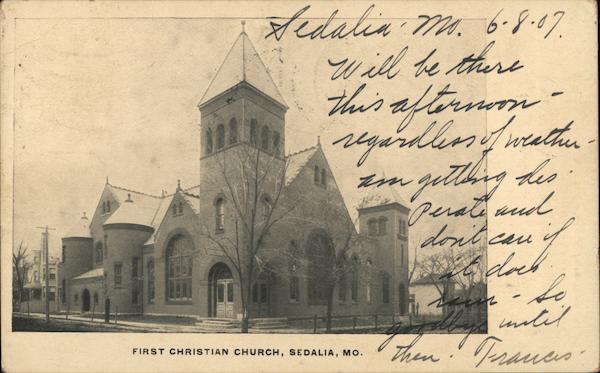 Sedalia - Mo. 6-8-07
Will be there
this afternoon -
regardless of weather -
am getting des-
perate and
don't care if
it does
rain - So
goodbye until
then. Frances
FIRST CHRISTIAN CHURCH, SEDALIA, MO.